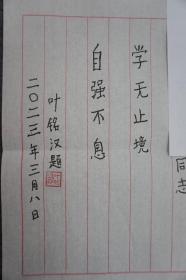 同志
学无止境
自强不息
叶铭汉题
二〇二三年三月八日